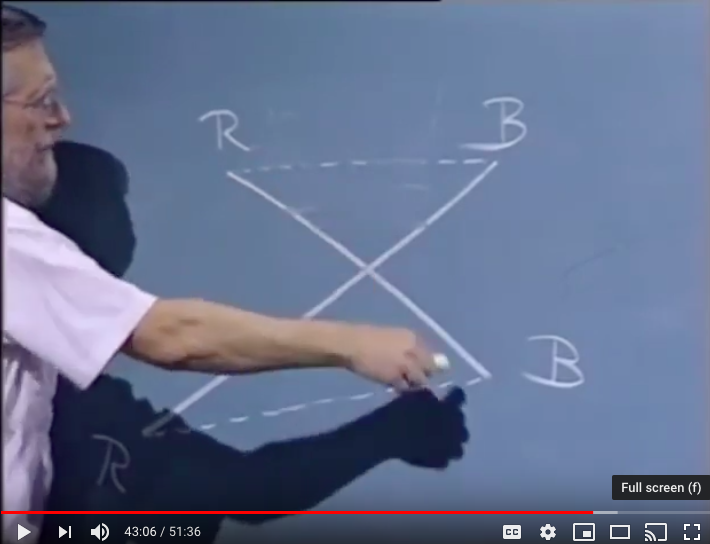 R B
B
R
Full screen (f)
43:06 / 51:36 CC